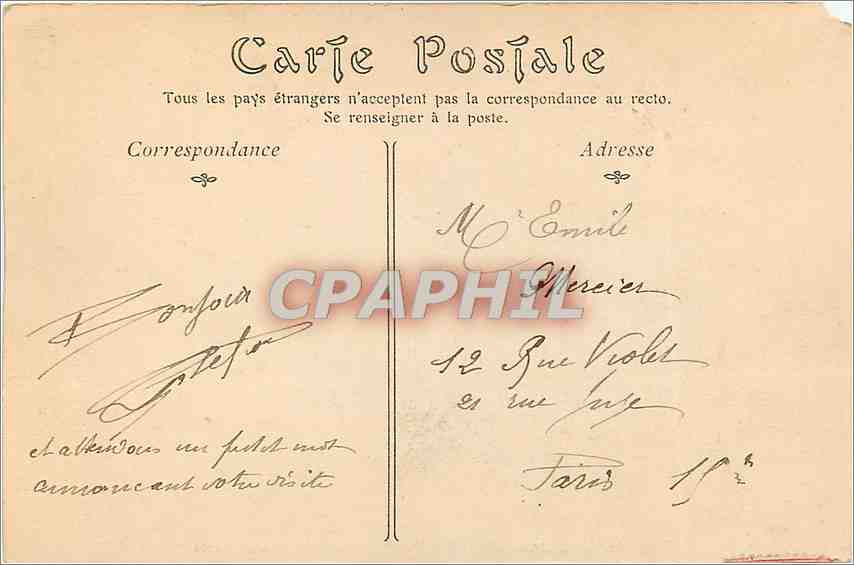 Carte Postale
Tous les pays étrangers n'acceptent pas la correspondance au recto.
Se renseigner à la poste.
Correspondance
Adresse
Bonjour
et attendons un petit mot
annoncant votre visite
Mr Emile
Mercier
12 Rue Violet
21 rue
Paris 15e
CPAPHIL